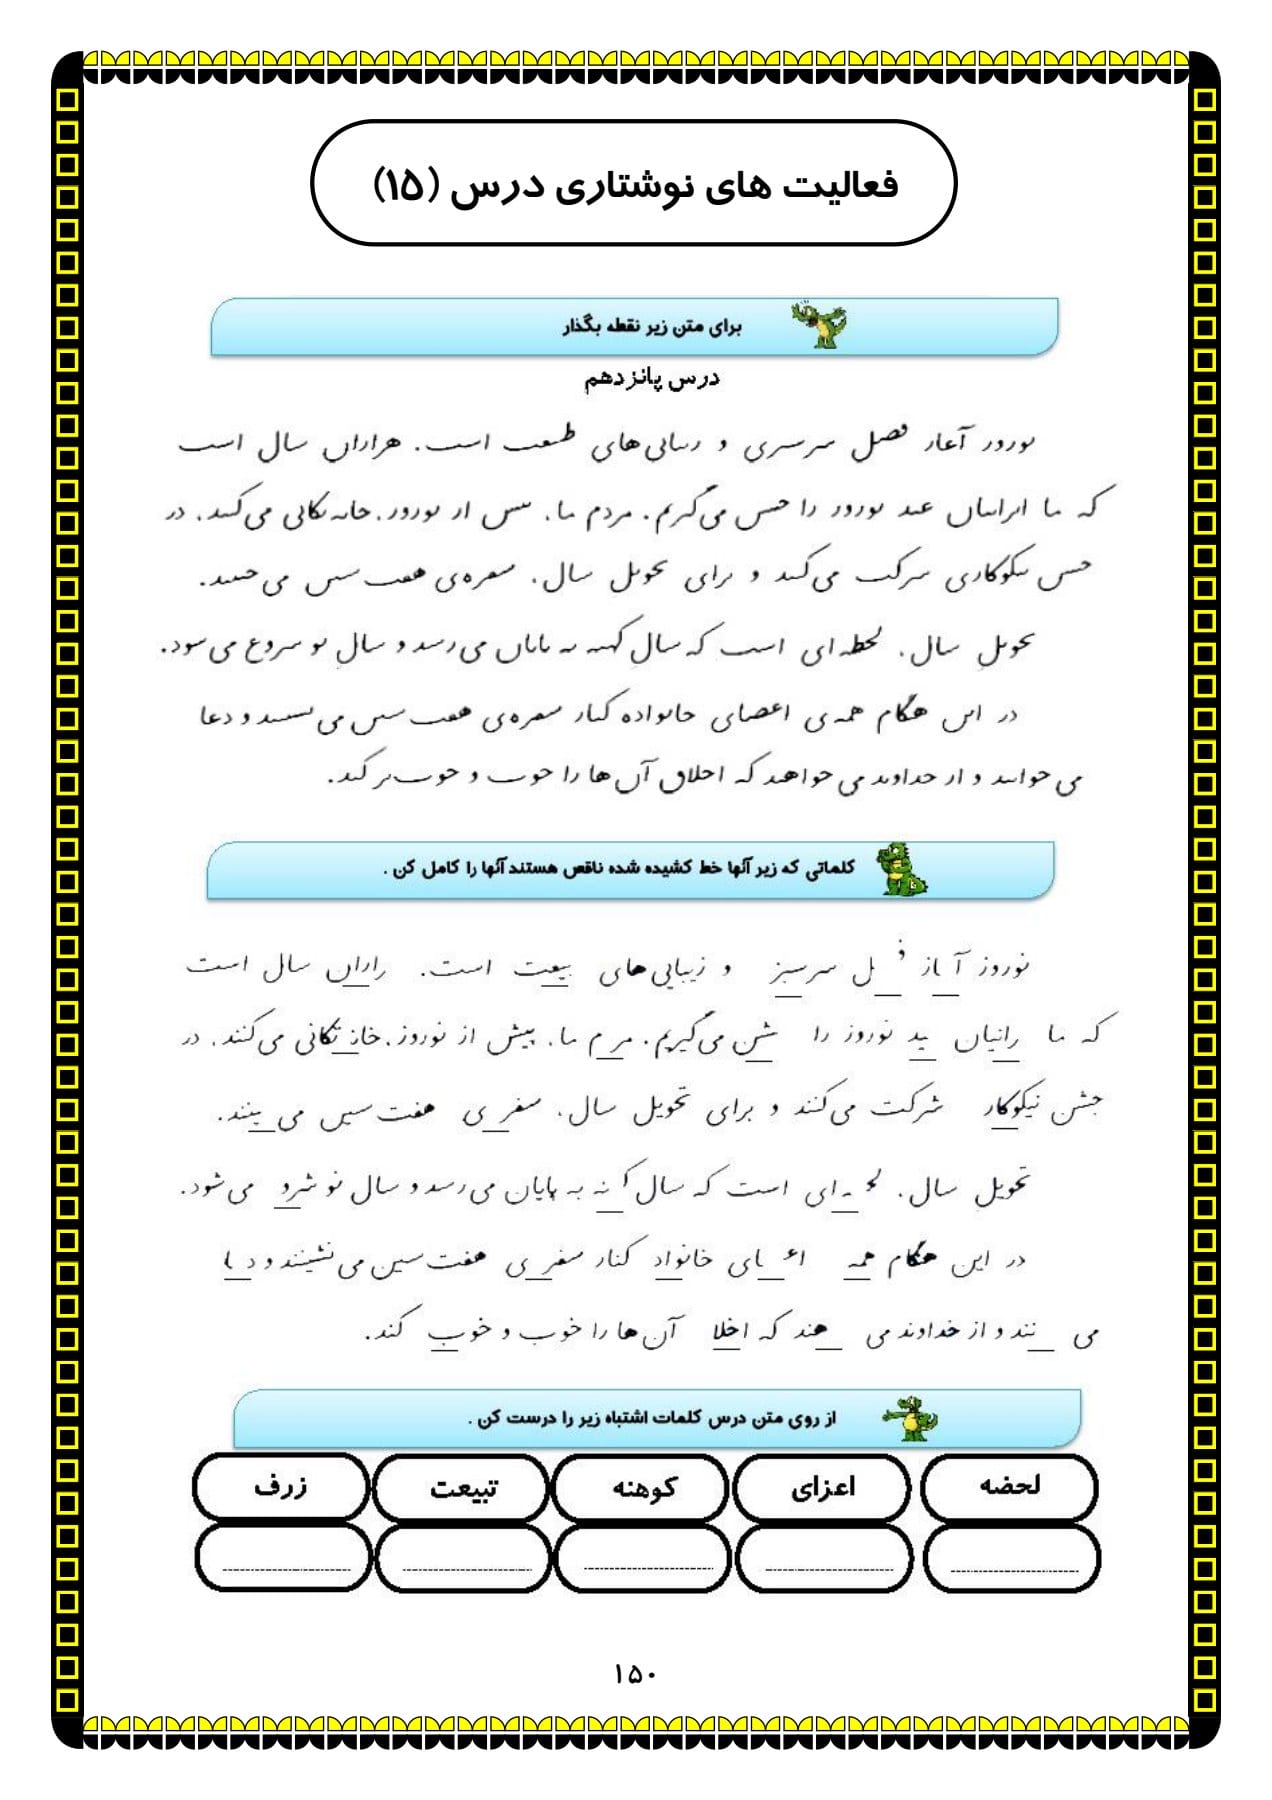 فعالیت های نوشتاری درس (۱۵)
برای متن زیر نقطه بگذار
درس پانزدهم
ٮورور آعار ڡصل سرسٮری و رٮٮاٮی‌های طٮٮعٮ اسٮ. هراراں سال اسٮ
که ما اٮراٮٮاں عٮد ٮورور را حسں می‌گٮرٮم. مردم ما، ٮٮس ار ٮورور، حاٮه ٮکاٮی می‌کٮٮد. در
حسں ٮٮکوکاری سرکٮ می‌کٮٮد و ٮرای ٮحوٮل سال، سڡره‌ی هڡٮ سٮں می حٮٮٮد.
ٮحوٮلِ سال، لحطه‌ای اسٮ که سالِ کهٮه ٮه ٮاٮاں می‌رسد و سالِ ٮو سروع می‌سود.
در اٮں هٮگام همه‌ی اعصای حاٮواده کٮار سڡره‌ی هڡٮ سٮں می‌ٮسٮٮٮد و دعا
می حواٮٮد و ار حداوٮد می حواهٮد که احلاق آں ها را حوٮ و حوٮ‌ٮر کٮد.
کلماتی که زیر آنها خط کشیده شده ناقص هستند آنها را کامل کن .
نوروز آ‌ ‌از ف‌ ‌ل سرسبز و زیبایی‌های بیعت است. راران سال است
که ما رانیان ید نوروز را شن می‌گیریم. مر م ما، پیش از نوروز، خان تکانی می‌کنند. در
جشن نیکوکار شرکت می‌کنند و برای تحویل سال، سفر ی هفت سین می ینند.
تحویلِ سال، لح ـه‌ای است که سال ک نه به پایان می‌رسد و سال نو شرو می‌شود.
در این هنگام همه اع ـای خانواد کنار سفر ی هفت سین می‌نشینند و د ا
می نند و از خداوند می هند که اخلا آن ها را خوب و خوب کند.
از روی متن درس کلمات اشتباه زیر را درست کن .
لحضه اعزای کوهنه تبیعت زرف
۱۵۰